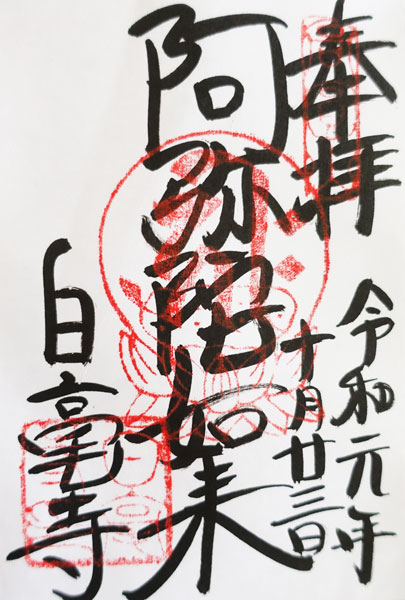 奉拝
令和元年
十月廿三日
阿弥陀如来
白毫寺